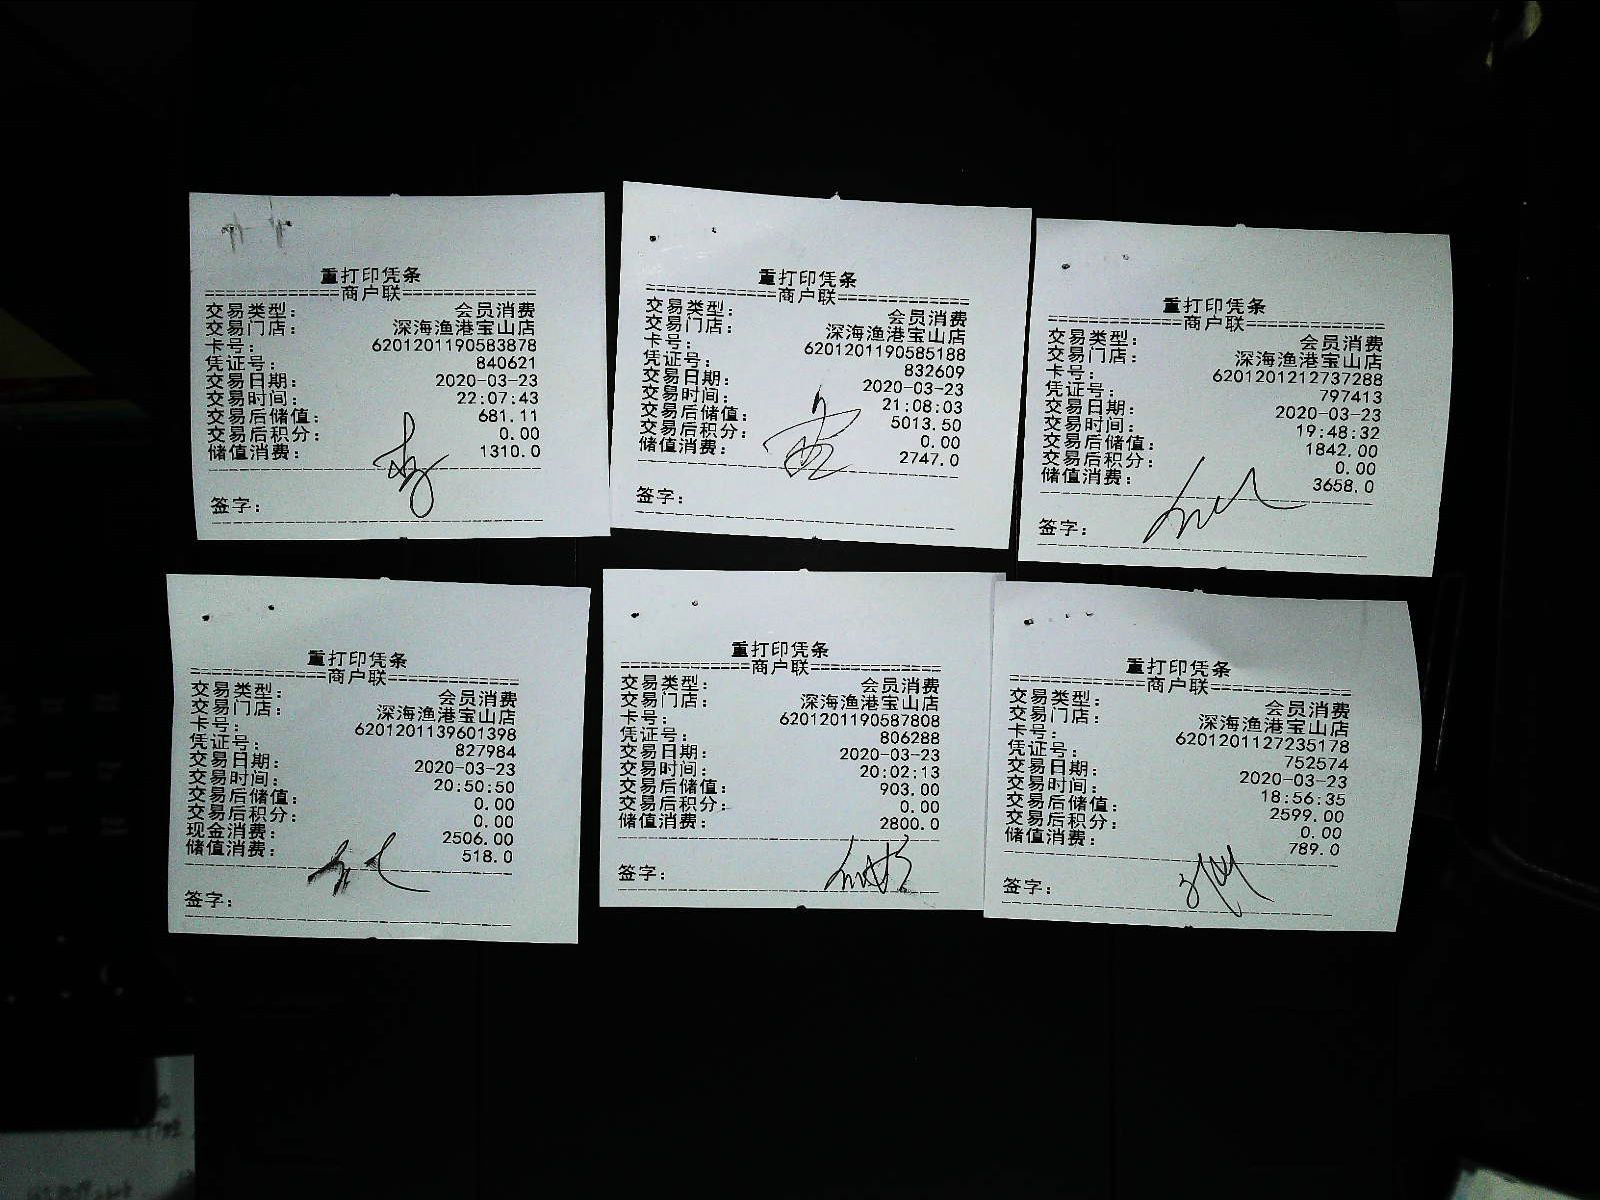 重打印凭条
=============商户联=============
交易类型： 会员消费
交易门店： 深海渔港宝山店
卡号： 6201201190583878
凭证号： 840621
交易日期： 2020-03-23
交易时间： 22:07:43
交易后储值： 681.11
交易后积分： 0.00
储值消费： 1310.0
签字：
重打印凭条
=============商户联=============
交易类型： 会员消费
交易门店： 深海渔港宝山店
卡号： 6201201190585188
凭证号： 832609
交易日期： 2020-03-23
交易时间： 21:08:03
交易后储值： 5013.50
交易后积分： 0.00
储值消费： 2747.0
签字：
重打印凭条
=============商户联=============
交易类型： 会员消费
交易门店： 深海渔港宝山店
卡号： 6201201212737288
凭证号： 797413
交易日期： 2020-03-23
交易时间： 19:48:32
交易后储值： 1842.00
交易后积分： 0.00
储值消费： 3658.0
签字：
重打印凭条
=============商户联=============
交易类型： 会员消费
交易门店： 深海渔港宝山店
卡号： 6201201139601398
凭证号： 827984
交易日期： 2020-03-23
交易时间： 20:50:50
交易后储值： 0.00
交易后积分： 0.00
现金消费： 2506.00
储值消费： 518.0
签字：
重打印凭条
=============商户联=============
交易类型： 会员消费
交易门店： 深海渔港宝山店
卡号： 6201201190587808
凭证号： 806288
交易日期： 2020-03-23
交易时间： 20:02:13
交易后储值： 903.00
交易后积分： 0.00
储值消费： 2800.0
签字：
重打印凭条
=============商户联=============
交易类型： 会员消费
交易门店： 深海渔港宝山店
卡号： 6201201127235178
凭证号： 752574
交易日期： 2020-03-23
交易时间： 18:56:35
交易后储值： 2599.00
交易后积分： 0.00
储值消费： 789.0
签字：